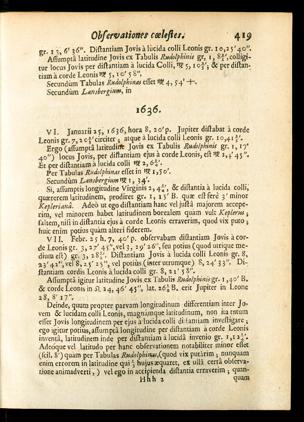 Observationes cœlestes. 419
gr. 13, 6' 36". Distantiam Jovis à lucida colli Leonis gr. 10, 25' 40".
Assumptâ latitudine Jovis ex Tabulis Rudolphinis gr. 1, 8¾', colligi-
tur locus Jovis per distantiam à lucida Colli, ♍ 5, 10¾', & per distan-
tiam à corde Leonis ♍ 5, 10' 58".
Secundum Tabulas Rudolphinas esset ♍ 4, 54' +.
Secundum Lansbergium, in
1636.
VI. Januarii 25, 1636, hora 8, 20' p. Jupiter distabat à corde
Leonis gr. 7, 20¾' circiter; atque à lucida colli Leonis gr. 10, 41¾'.
Ergo (assumptâ latitudine Jovis ex Tabulis Rudolphinis gr. 1, 17'
40") locus Jovis, per distantiam ejus à corde Leonis, est ♍ 2, 4' 45".
Et per distantiam à colli lucida, ♍ 2, 6¾'.
Per Tabulas Rudolphinas esset in ♍ 1, 50'.
Secundum Lansbergium ♍ 1, 34'.
Si, assumptis longitudine Virginis 2, 4¾', & distantia à lucida colli,
quærerem latitudinem, prodiret gr. 1, 13' B. quæ esset 3' minor
Kepleriana. Adeò ut ego distantiam hanc vel justâ majorem accepe-
rim, vel minorem habet latitudinem borealem quam vult Keplerus;
saltem, nisi in distantia ejus à corde Leonis erraverim, quod vix puto;
huic enim potius quam alteri fiderem.
VII. Febr. 25 h. 7, 40' p. observabam distantiam Jovis à cor-
de Leonis gr. 3, 27' 45", vel 3, 29' 26", seu potius (quod utrique me-
dium est) gr. 3, 28¾'. Distantiam Jovis à lucida colli Leonis gr. 8,
23' 42", vel 8, 25' 23", vel potius (inter utrumque) 8, 24' 33". Di-
stantiam cordis Leonis à lucida colli gr. 8, 21' 58".
Assumptâ igitur latitudine Jovis ex Tabulis Rudolphinis gr. 1, 40' B.
& corde Leonis in ♌ 24, 46' 45", lat. 26¼' B. erit Jupiter in Leone
28, 8' 17".
Deinde, quum propter parvam longitudinum differentiam inter Jo-
vem & lucidam colli Leonis, magnamque latitudinum, non ita tutum
esset Jovis longitudinem per ejus à lucida colli distantiam investigare;
ego igitur potius, assumptâ longitudine per distantiam à corde Leonis
inventâ, latitudinem inde per distantiam à lucida invenio gr. 1, 12¾'.
Adeòque vel latitudo per hanc observationem notabiliter minor esset
(scil. 8') quam per Tabulas Rudolphinas, (quod vix putârim, nunquam
enim errorem in latitudine qui ¼ hujus æquaret, ex ulla certâ observa-
tione animadverti,) vel ego in accipienda distantia erraverim; quan-
Hhh 2 quam